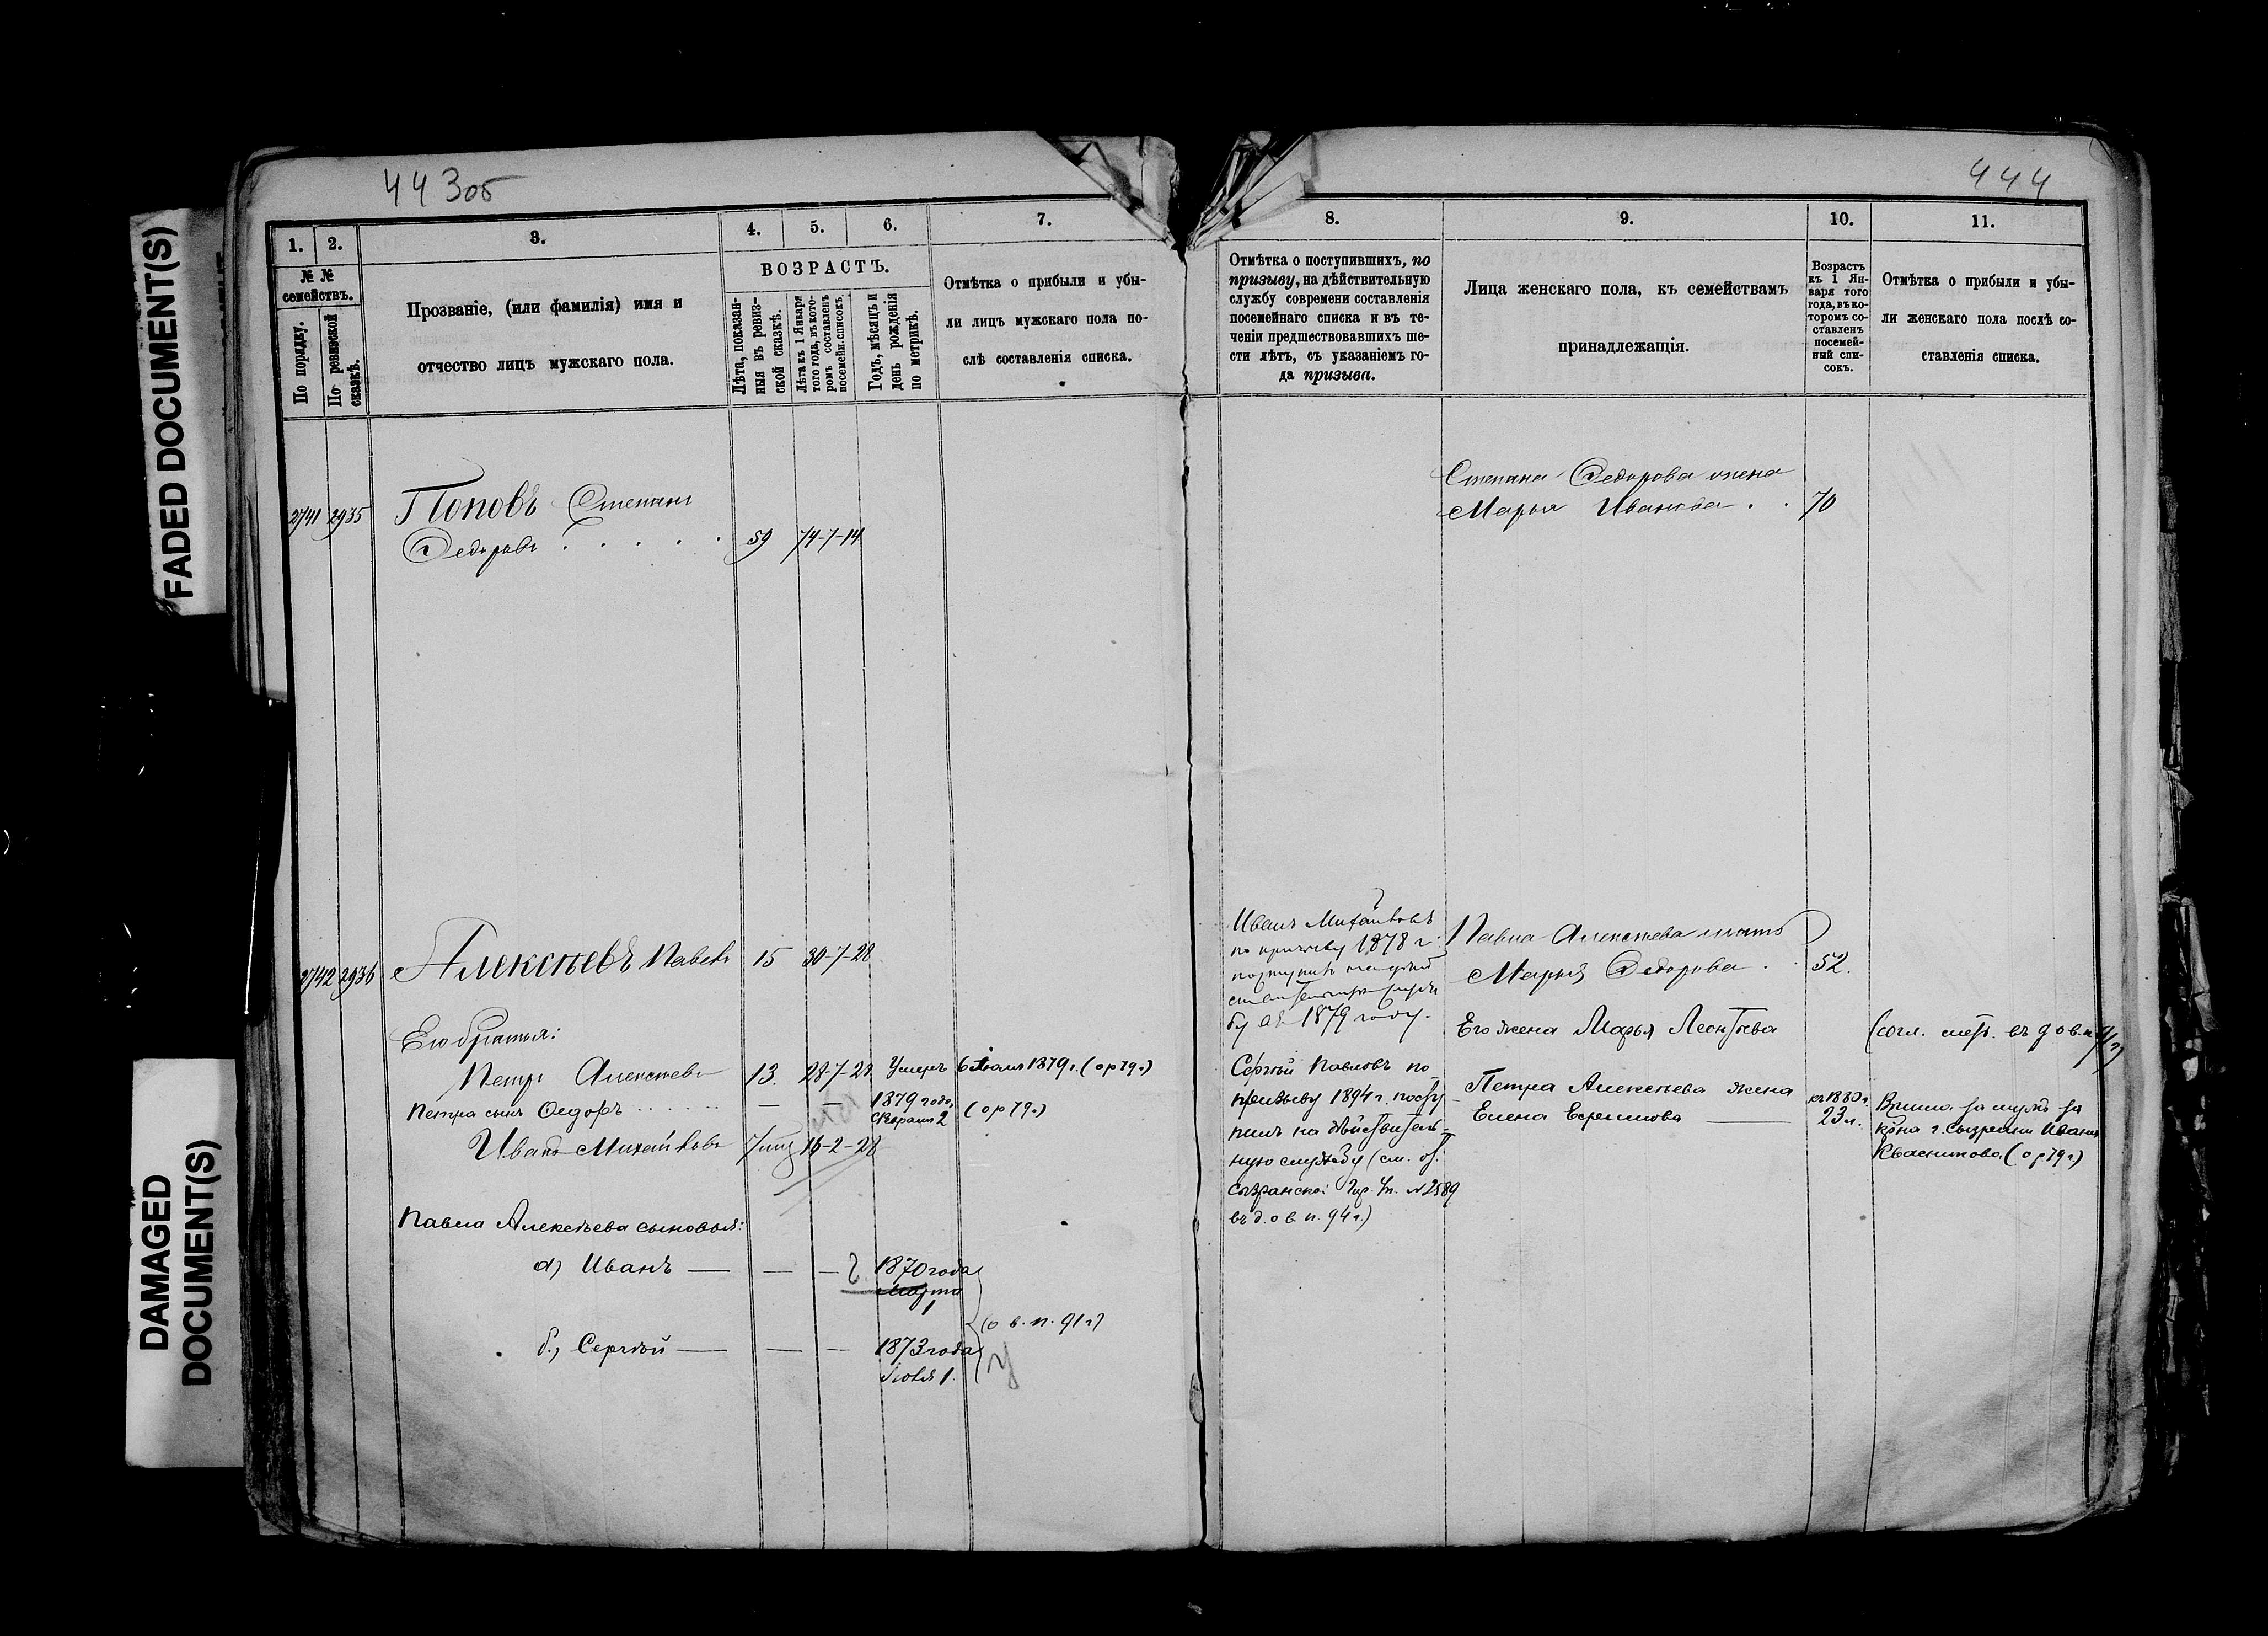 FADED DOCUMENT(S)
DAMAGED
DOCUMENT(S)
443об
1.
2.
3.
4.
5.
6.
7.
№ №
семействъ.
По порядку.
По ревизской
сказкѣ.
Прозваніе, (или фамилія) имя и
отчество лицъ мужскаго пола.
ВОЗРАСТЪ.
Лѣта, показан-
ныя въ ревиз-
ской сказкѣ.
Лѣта къ 1 Января
того года, въ кото-
ромъ составленъ
посемейн. списокъ.
Годъ, мѣсяцъ и
день рожденія
по метрикѣ.
Отмѣтка о прибыли и убы-
ли лицъ мужскаго пола по-
слѣ составленія списка.
2741 2935
Поповъ Степанъ
Ѳедоровъ . . . . . 59 74-7-14
2742 2936
Алексѣевъ Павелъ 15 30-7-28
Его братья:
Петръ Алексѣевъ 13. 28-7-28 Умеръ 6 1879 г. (о р 79 г.)
Петра сынъ Ѳедоръ ........ — — 1879 года,
Февраля 2 (о р 79 г.)
Иванъ Михайловъ 16-2-28
Павла Алексѣева сыновья:
а) Иванъ — — — 1870 года
марта
1
(о в. п. 91 г.)
б.) Сергѣй — — — 1873 года
1.
444
8.
9.
10.
11.
Отмѣтка о поступившихъ, по
призыву, на дѣйствительную
службу современи составленія
посемейнаго списка и въ те-
ченіи предшествовавшихъ ше-
сти лѣтъ, съ указаніемъ го-
да призыва.
Лица женскаго пола, къ семействамъ
принадлежащія.
Возрастъ
къ 1 Ян-
варя того
года, въ ко-
торомъ со-
ставленъ
посемей-
ный спи-
сокъ.
Отмѣтка о прибыли и убы-
ли женскаго пола послѣ со-
ставленія списка.
Степана Ѳедорова жена
Марья Иванова . . 70
Иванъ Михайловъ
по призыву 1878 г.
поступилъ на
въ 1879 году.
Сергѣй Павловъ по
призыву 1894 г. посту
пилъ на дѣйствитель-
ную службу (см. от.
Сызранской Гор. Уп. № 2589
въ д. о в п. 94 г.)
Павла Алексѣева мать
Марья Ѳедорова . . 52.
Его жена Марья Леонтьева (согл. метр. въ д о в. п.
Петра Алексѣева жена
Елена Ефремова — къ 1880 г.
23 л.
Вышла за мужъ за
г. Сызрани Ивана
Квасникова. (о р 79 г.)